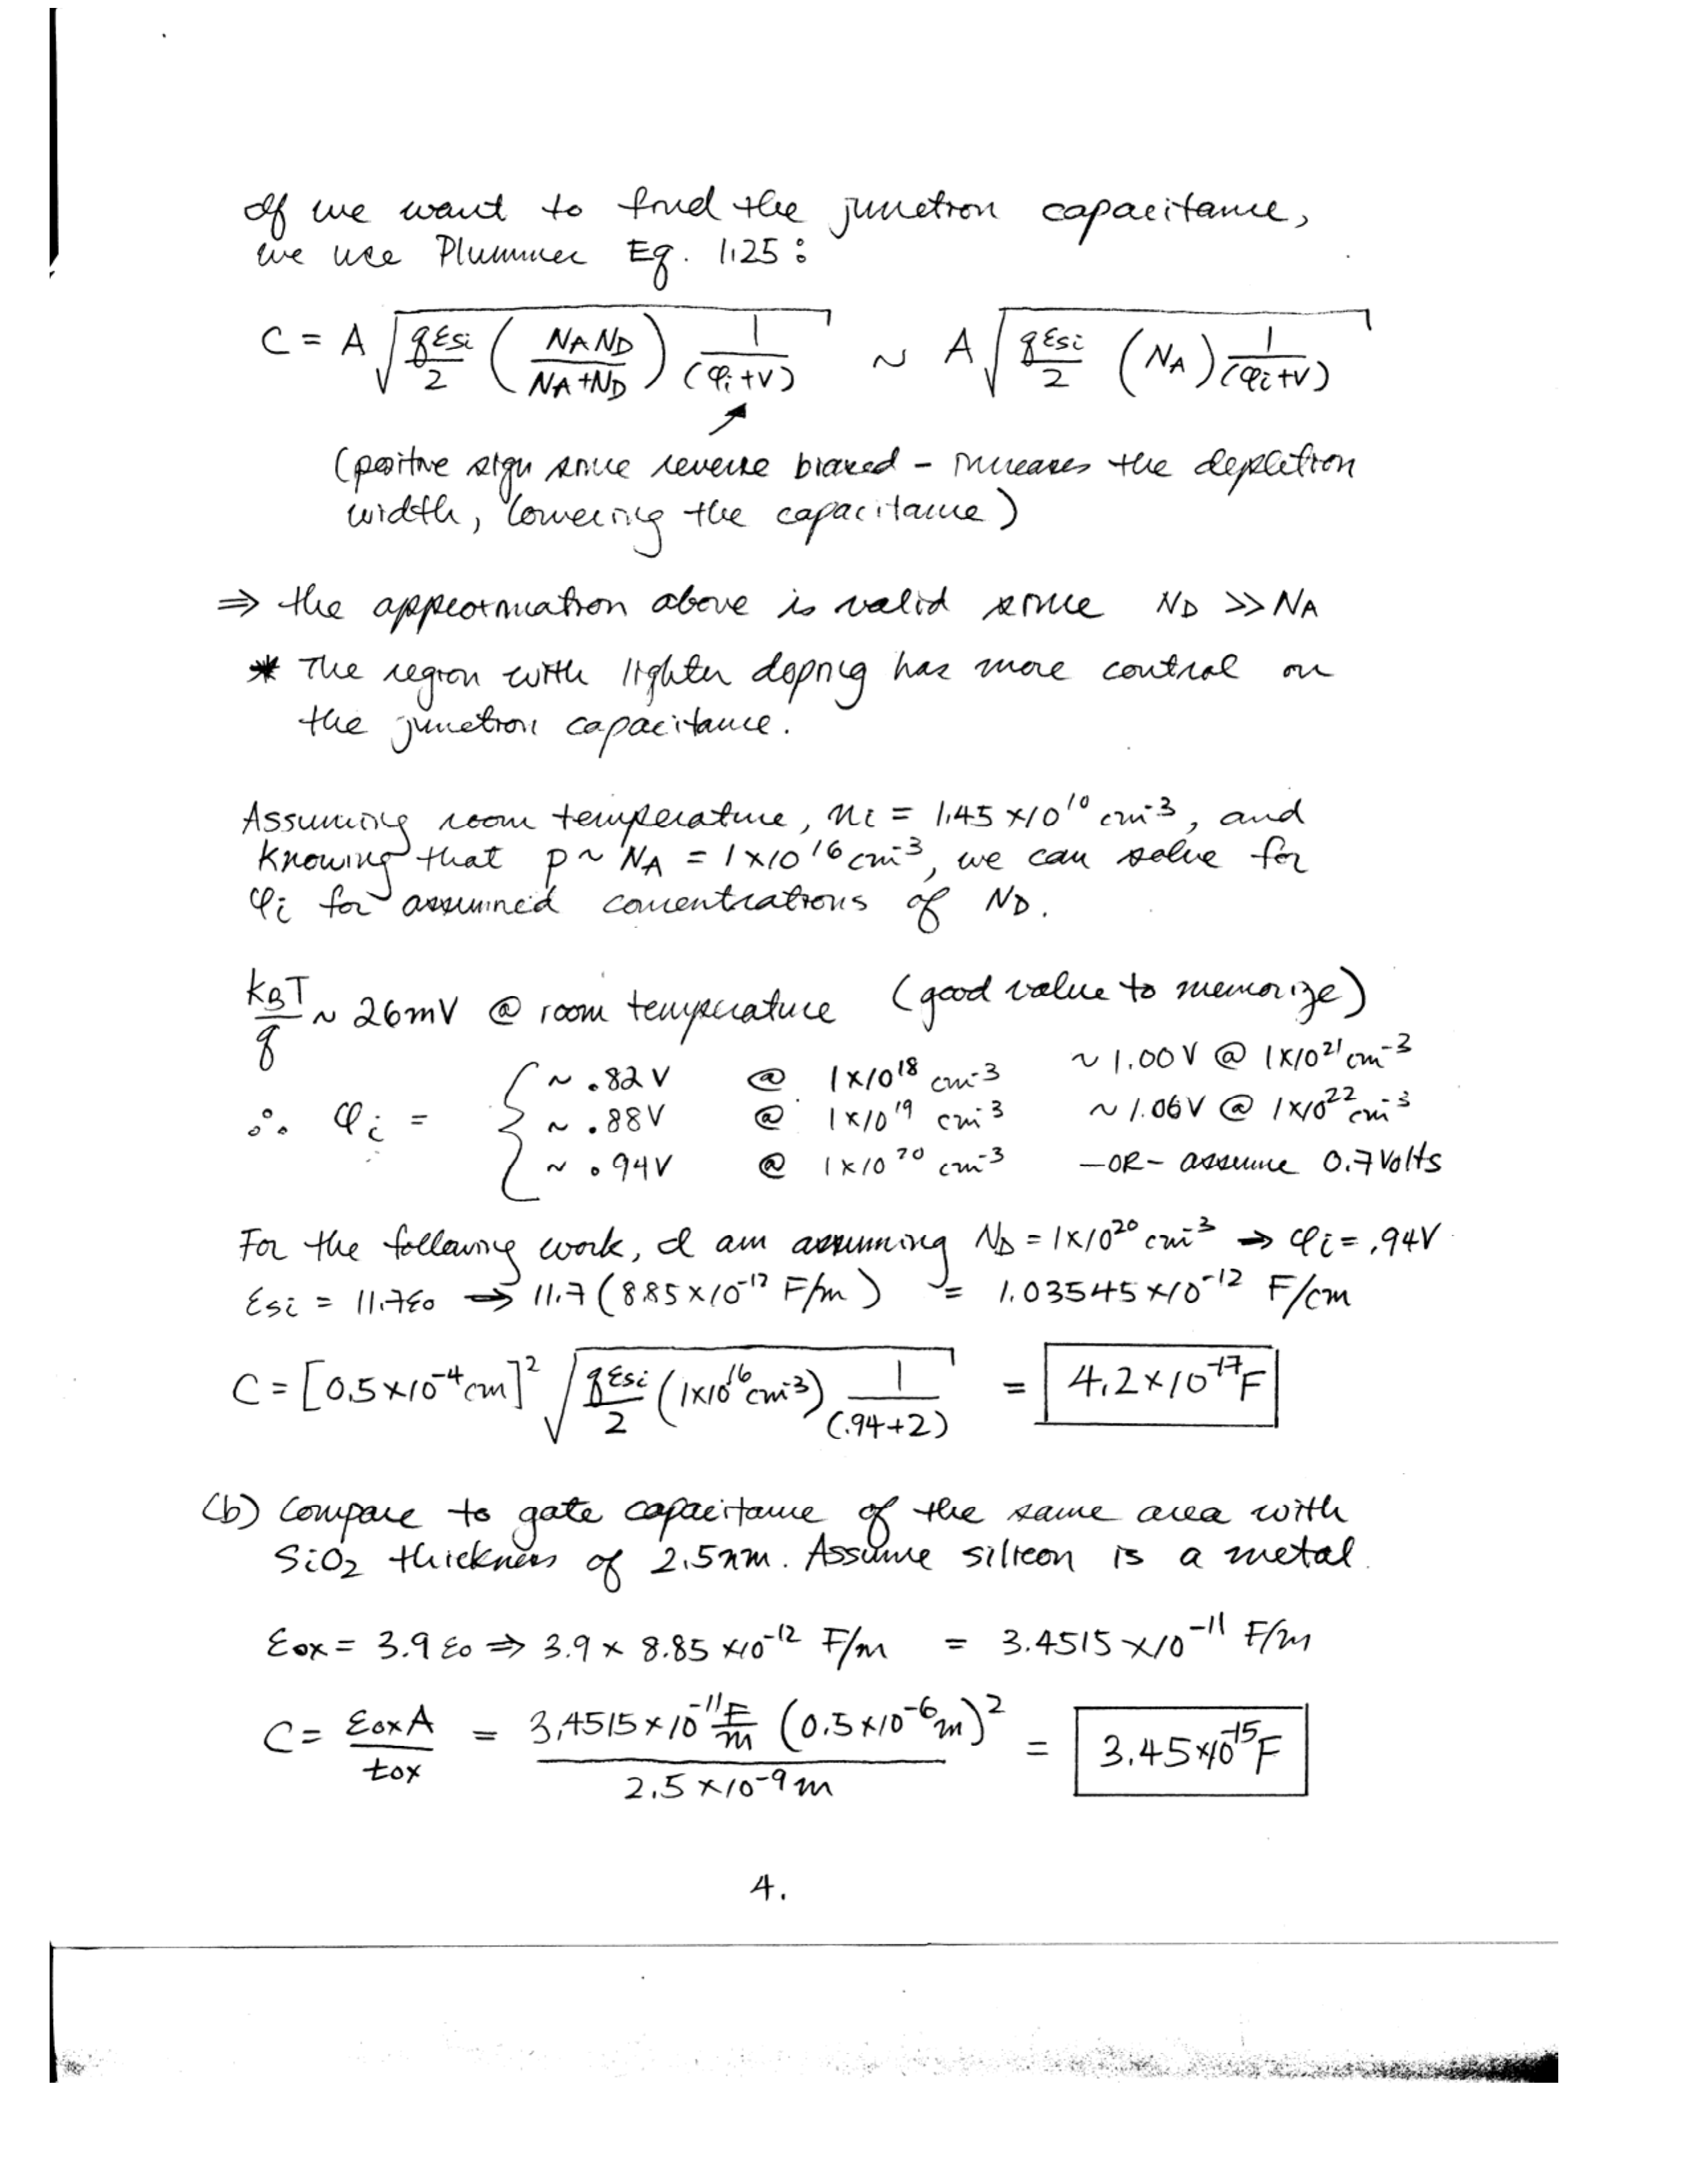 If we want to find the junction capacitance,
we use Plummer Eq. 1.25:
C = A √( qεsi/2 ( NA ND / NA+ND ) 1/(φi+V) ) ~ A √( qεsi/2 (NA) 1/(φi+V) )
(positive sign since reverse biased - increases the depletion
width, lowering the capacitance)
⇒ the approximation above is valid since ND >> NA
* The region with lighter doping has more control on
the junction capacitance.
Assuming room temperature, ni = 1.45 x10^10 cm^-3, and
knowing that p ~ NA = 1x10^16 cm^-3, we can solve for
φi for assumed concentrations of ND.
kBT/q ~ 26mV @ room temperature (good value to memorize)
∴ φi = { ~ .82V @ 1x10^18 cm^-3 ~ 1.00V @ 1x10^21 cm^-3
~ .88V @ 1x10^19 cm^-3 ~ 1.06V @ 1x10^22 cm^-3
~ .94V @ 1x10^20 cm^-3 -OR- assume 0.7 Volts
For the following work, I am assuming ND = 1x10^20 cm^-3 → φi = .94V
εsi = 11.7ε0 → 11.7 (8.85 x10^-12 F/m) = 1.03545 x10^-12 F/cm
C = [0.5x10^-4 cm]^2 √( qεsi/2 (1x10^16 cm^-3) 1/(.94+2) ) = 4.2x10^-17 F
(b) Compare to gate capacitance of the same area with
SiO2 thickness of 2.5nm. Assume silicon is a metal.
εox = 3.9 ε0 ⇒ 3.9 x 8.85 x10^-12 F/m = 3.4515 x10^-11 F/m
C = εoxA/tox = 3.4515 x10^-11 F/m (0.5x10^-6 m)^2 / 2.5 x10^-9 m = 3.45x10^-15 F
4.